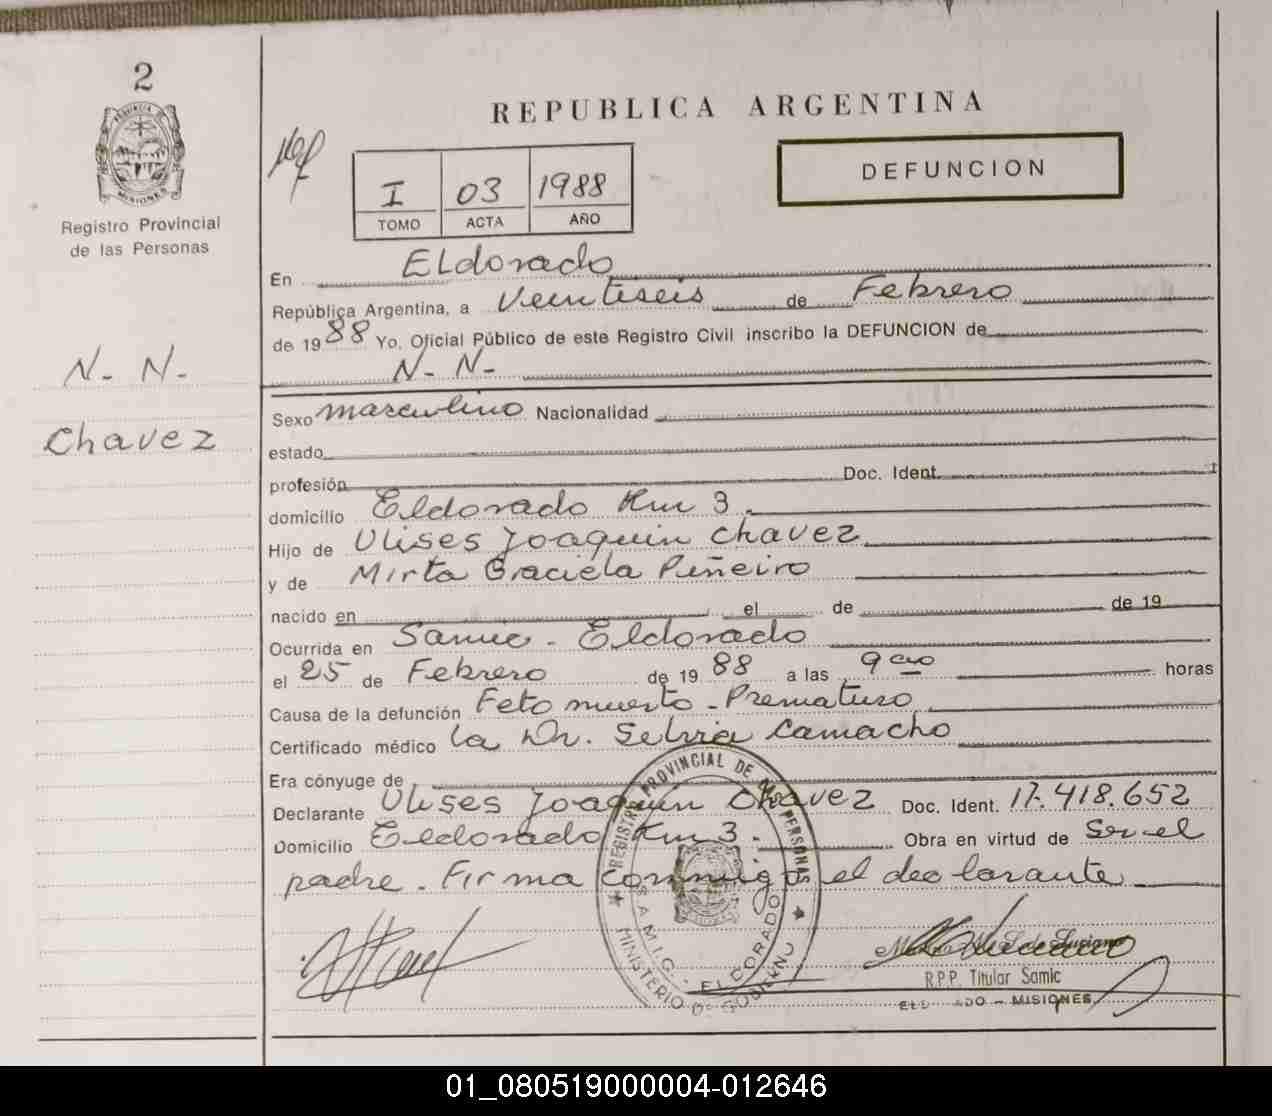 2
PROVINCIA DE
MISIONES
Registro Provincial
de las Personas
N. N.
Chavez
REPUBLICA ARGENTINA
DEFUNCION
I 03 1988
TOMO ACTA AÑO
En Eldorado
República Argentina, a Veintiseis de Febrero
de 1988 Yo, Oficial Público de este Registro Civil inscribo la DEFUNCION de
N. N.
Sexo masculino Nacionalidad
estado
profesión Doc. Ident.
domicilio Eldorado Km 3.
Hijo de Ulises Joaquin Chavez
y de Mirta Graciela Piñeiro
nacido en el de de 19
Ocurrida en Samic - Eldorado
el 25 de Febrero de 1988 a las 9 horas
Causa de la defunción Feto muerto - Prematuro
Certificado médico la Dr. Selvia Camacho
Era cónyuge de
Declarante Ulises Joaquin Chavez Doc. Ident. 17.418.652
Domicilio Eldorado Km 3. Obra en virtud de Ser el
padre. Firma conmigo el declarante
REGISTRO PROVINCIAL DE LAS PERSONAS
S.A.M.I.C. - ELDORADO
MINISTERIO D GOBIERNO
R.P.P. Titular Samic
ELD ADO - MISIONES
01_080519000004-012646